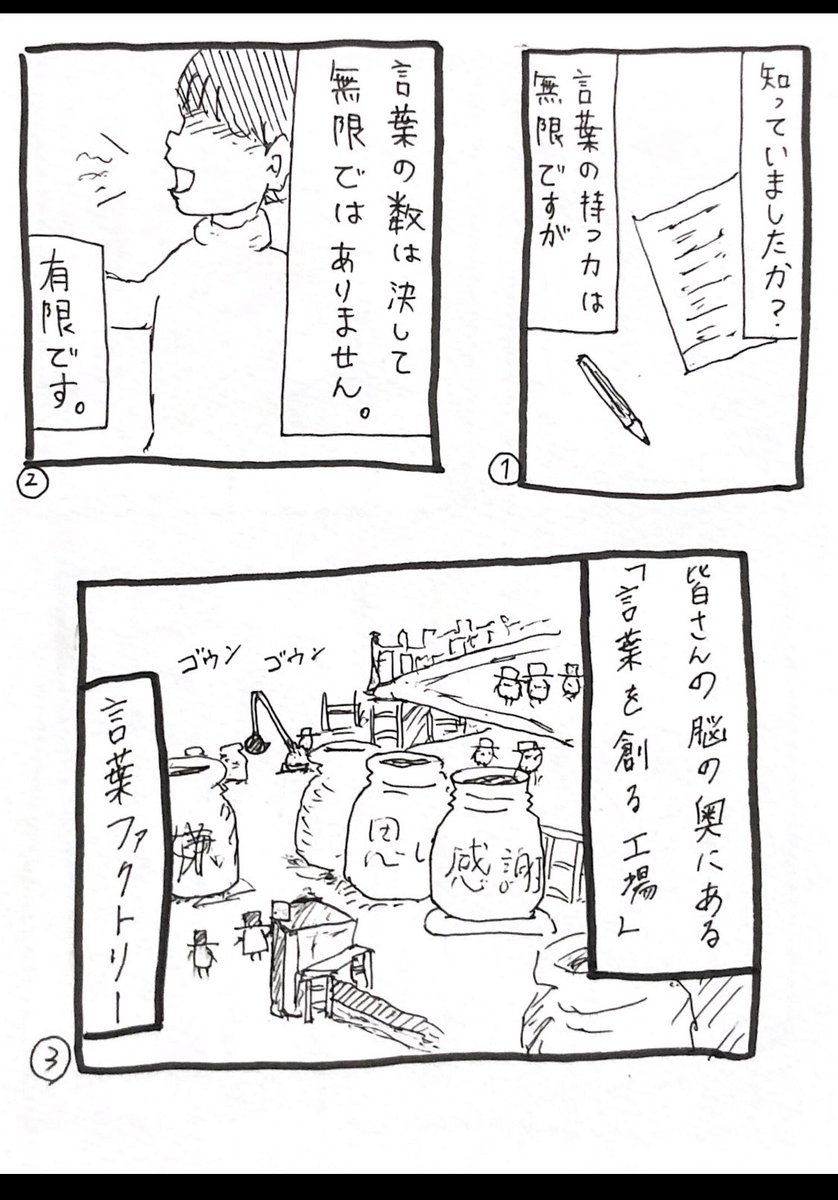 知っていましたか？
言葉の持つ力は
無限ですが
1
言葉の数は決して
無限ではありません。
有限です。
2
皆さんの脳の奥にある
「言葉を創る工場」
ゴウン ゴウン
感謝
思
嫌
言葉ファクトリー
3